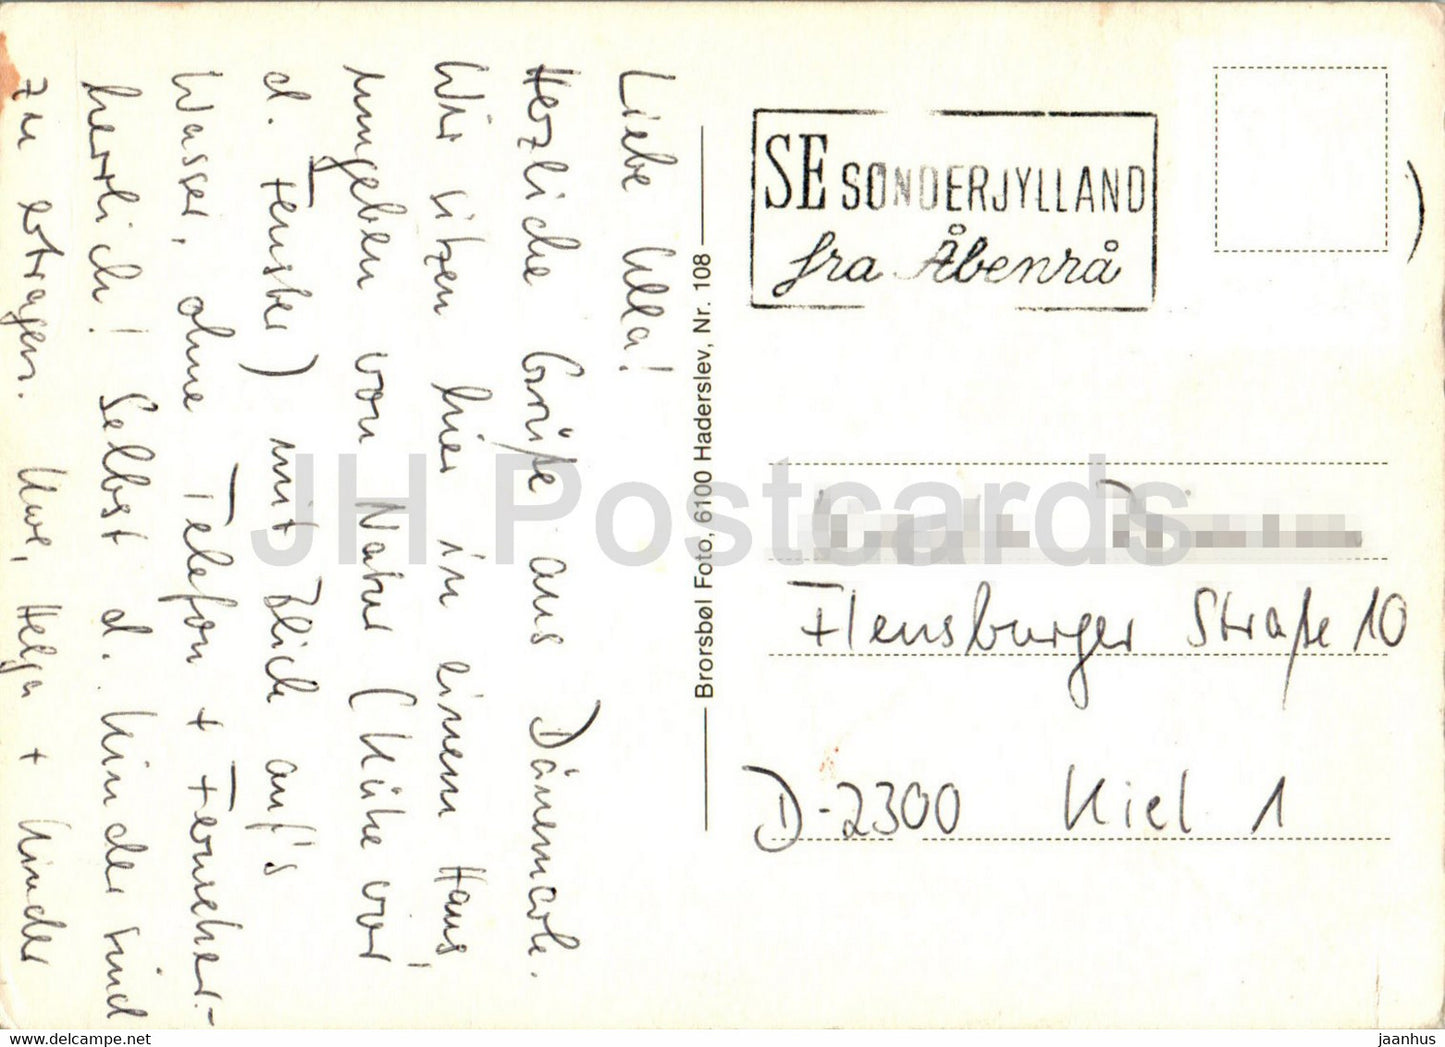 Liebe Ulla!
Herzliche Grüße aus Dänemark.
Wir sitzen hier in einem Haus
umgeben von Natur (Kühe vor
d. Fenster) mit Blick auf's
Wasser, ohne Telefon + Fernseher -
herrlich! Selbst d. Kinder sind
zu ertragen. Uwe, Helga + Kinder
Brorsbøl Foto, 6100 Haderslev, Nr. 108
SE SØNDERJYLLAND
fra Åbenrå
Flensburger Straße 10
D-2300 Kiel 1
JH Postcards
www.delcampe.net
jaanhus